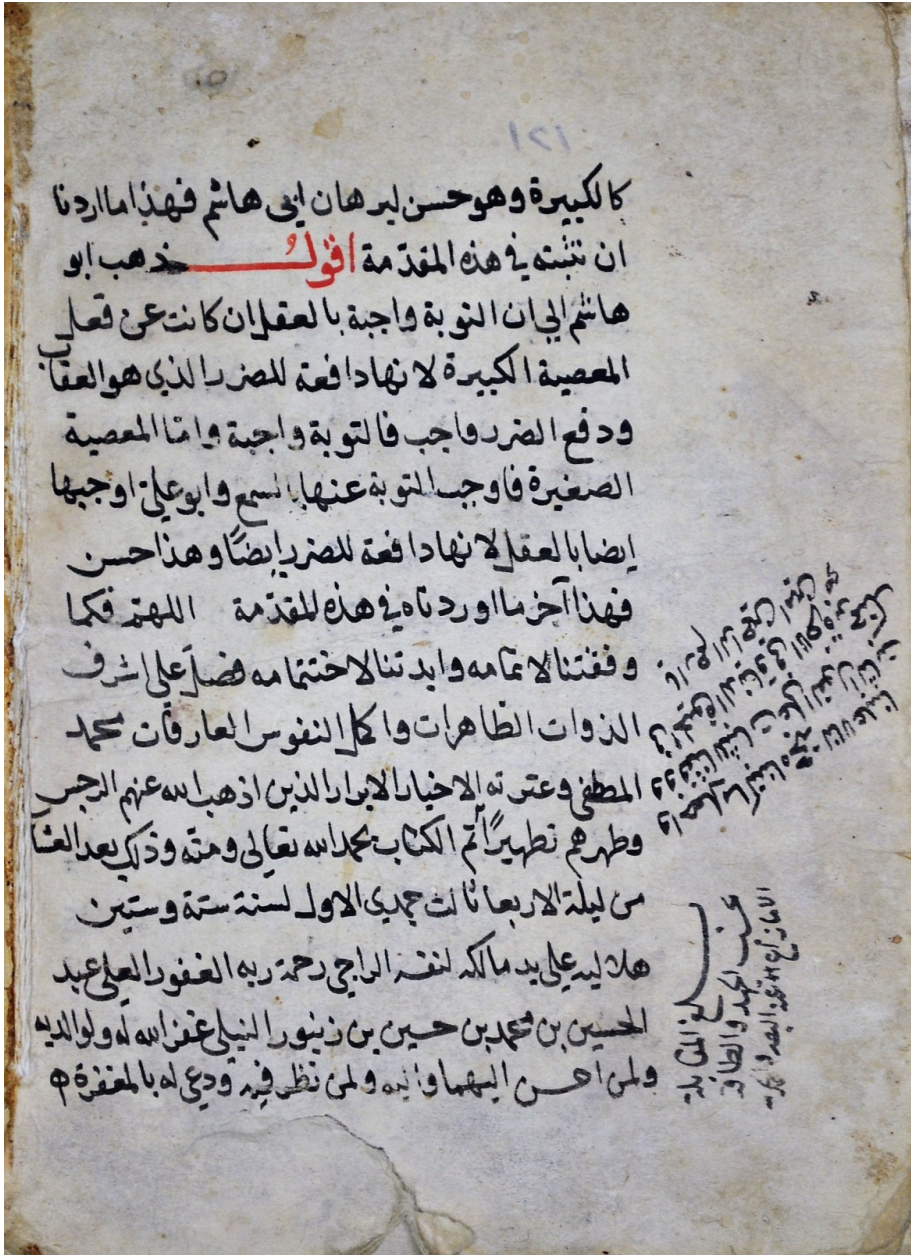 كالكبيرة وهو حسن لبرهان ابى هاشم فهذا ما اردنا
ان نثبته في هذه المقدّمة اقول ذهب ابو
هاشم الي ان التوبة واجبة بالعقل ان كانت عن فعل
المعصية الكبيرة لانها دافعة للضرر الذي هو العقاب
ودفع الضرر واجب فالتوبة واجبة وامّا المعصية
الصغيرة فاوجب التوبة عنها بالسمع وابو علي اوجبها
ايضا بالعقل لانها دافعة للضرر ايضًا وهذا حسن
فهذا آخر ما اوردناه في هذه المقدّمة اللهمّ فكما
وفقتنا لاتمامه وايدتنا لاختتامه فصلّ على اشرف
الذوات الطاهرات واكمل النفوس العارفات محمد
المطفى وعترته الاخيار الابرار الذين اذهب الله عنهم الرجس
وطهرهم تطهيرًا تم الكتاب بحمد الله تعالى ومنه وذلك بعد العشا
من ليلة الاربعا ثالث جمدى الاول لسنة ستة وستين
هلاليه على يد مالكه لنفسه الراجي رحمة ربه الغفور العلي عبد
الحسين بن محمد بن حسين بن زينور النيلي غفر الله له ولوالديه
ولمن احسن اليهما واليه ولمن نظر فيه ودعى له بالمغفرة
بلغ المقابلة
بحسب الجهد والطاقة
الا ما زاغ عنه البصر
١٢١